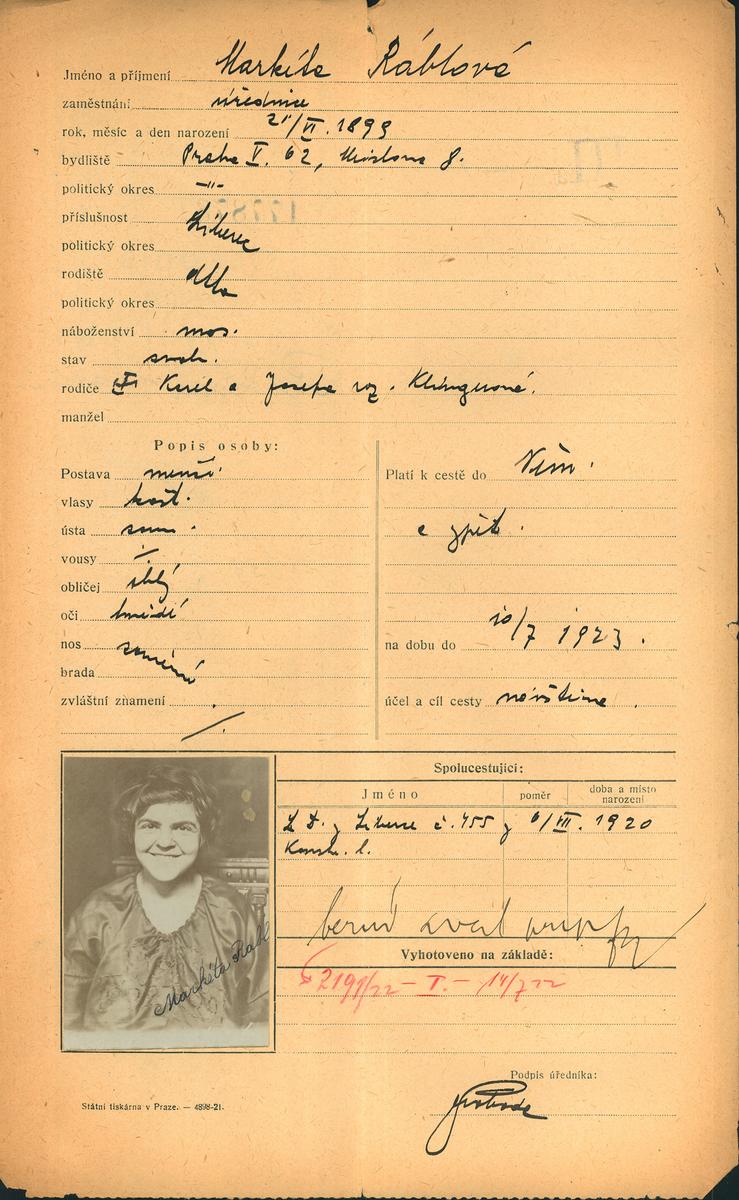 Jméno a příjmení Markéta Ráblová
zaměstnání úřednice
rok, měsíc a den narození 21/VI. 1899
bydliště Praha V. 62, 8.
politický okres —"—
příslušnost Liberec
politický okres
rodiště dtto
politický okres
náboženství mos.
stav svob.
rodiče Karel a Josefa roz. Klingerová.
manžel
Popis osoby:
Postava menší.
vlasy kašt.
ústa soum.
vousy /.
obličej
oči hnědé
nos souměrný
brada
zvláštní znamení
/.
Platí k cestě do Něm.
a zpět.
na dobu do 10/7 1923.
účel a cíl cesty návštěva.
Spolucestující:
Jméno
poměr
doba a místo narození
D. L. z Liberce č. 455 z 6/VII. 1920
Vyhotoveno na základě:
2198/22 — I. — 14/7 22
Podpis úředníka:
Svoboda
Markéta Rabl
Státní tiskárna v Praze. — 4898-21.